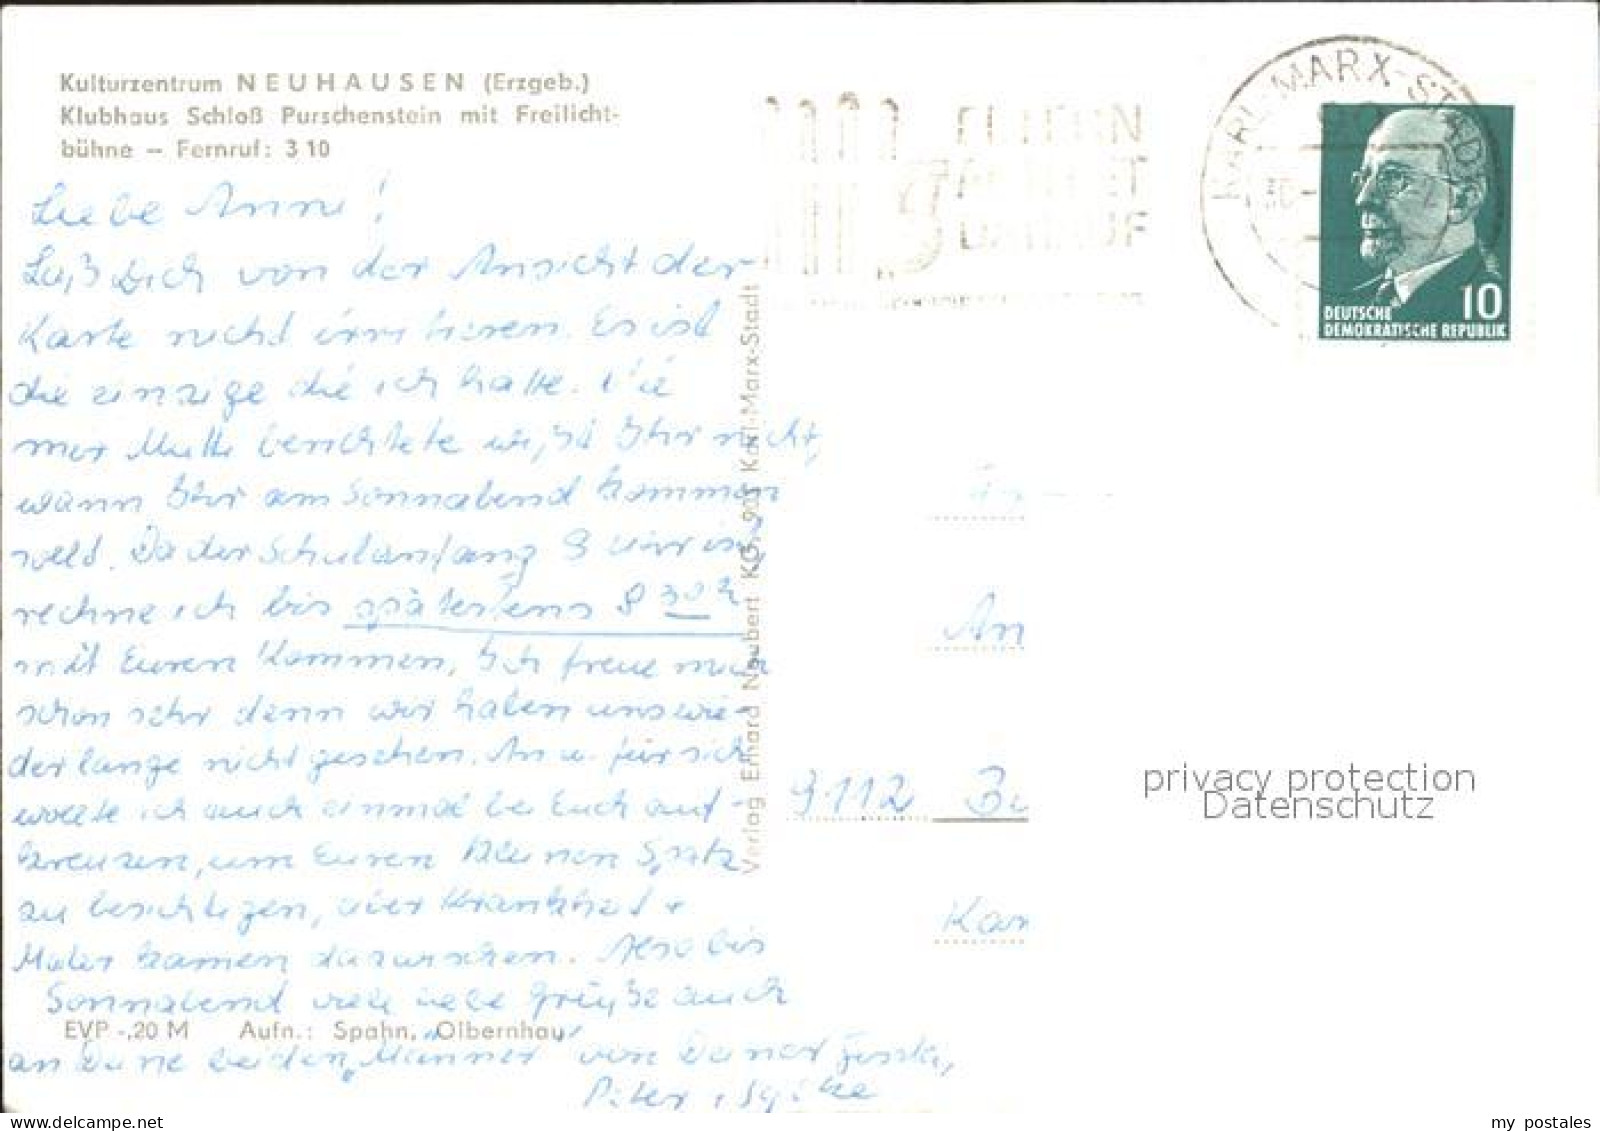 Kulturzentrum NEUHAUSEN (Erzgeb.)
Klubhaus Schloß Purschenstein mit Freilicht-
bühne — Fernruf: 3 10
Liebe Anne!
Laß Dich von der Ansicht der
Karte nicht irritieren. Es ist
die einzige die ich hatte. Wie
mer Mutti berichtete wißt Ihr nicht,
wann Ihr am Sonnabend kommen
sollt. Da der Schulanfang 9 Uhr ist,
rechne ich bis spätestens 8 30 h
mit Euren Kommen. Ich freue mich
schon sehr denn wir haben uns wie-
der lange nicht gesehen. An u. für sich
wollte ich auch einmal bei Euch auf-
kreuzen, um Euren kleinen Spatz
zu besichtigen, aber Krankheit +
Maler kamen dazwischen. Also bis
Sonnabend viele liebe Grüße auch
an Deine beiden Männer von Deiner
Peter
EVP -,20 M Aufn.: Spahn, Olbernhau
Verlag Erhard Neubert KG, 901 Karl-Marx-Stadt
ELTERN
ACHTET
DARAUF
KARL-MARX-STADT
DEUTSCHE
DEMOKRATISCHE REPUBLIK
10
An
9112 Bu
Kar
privacy protection
Datenschutz
my postales